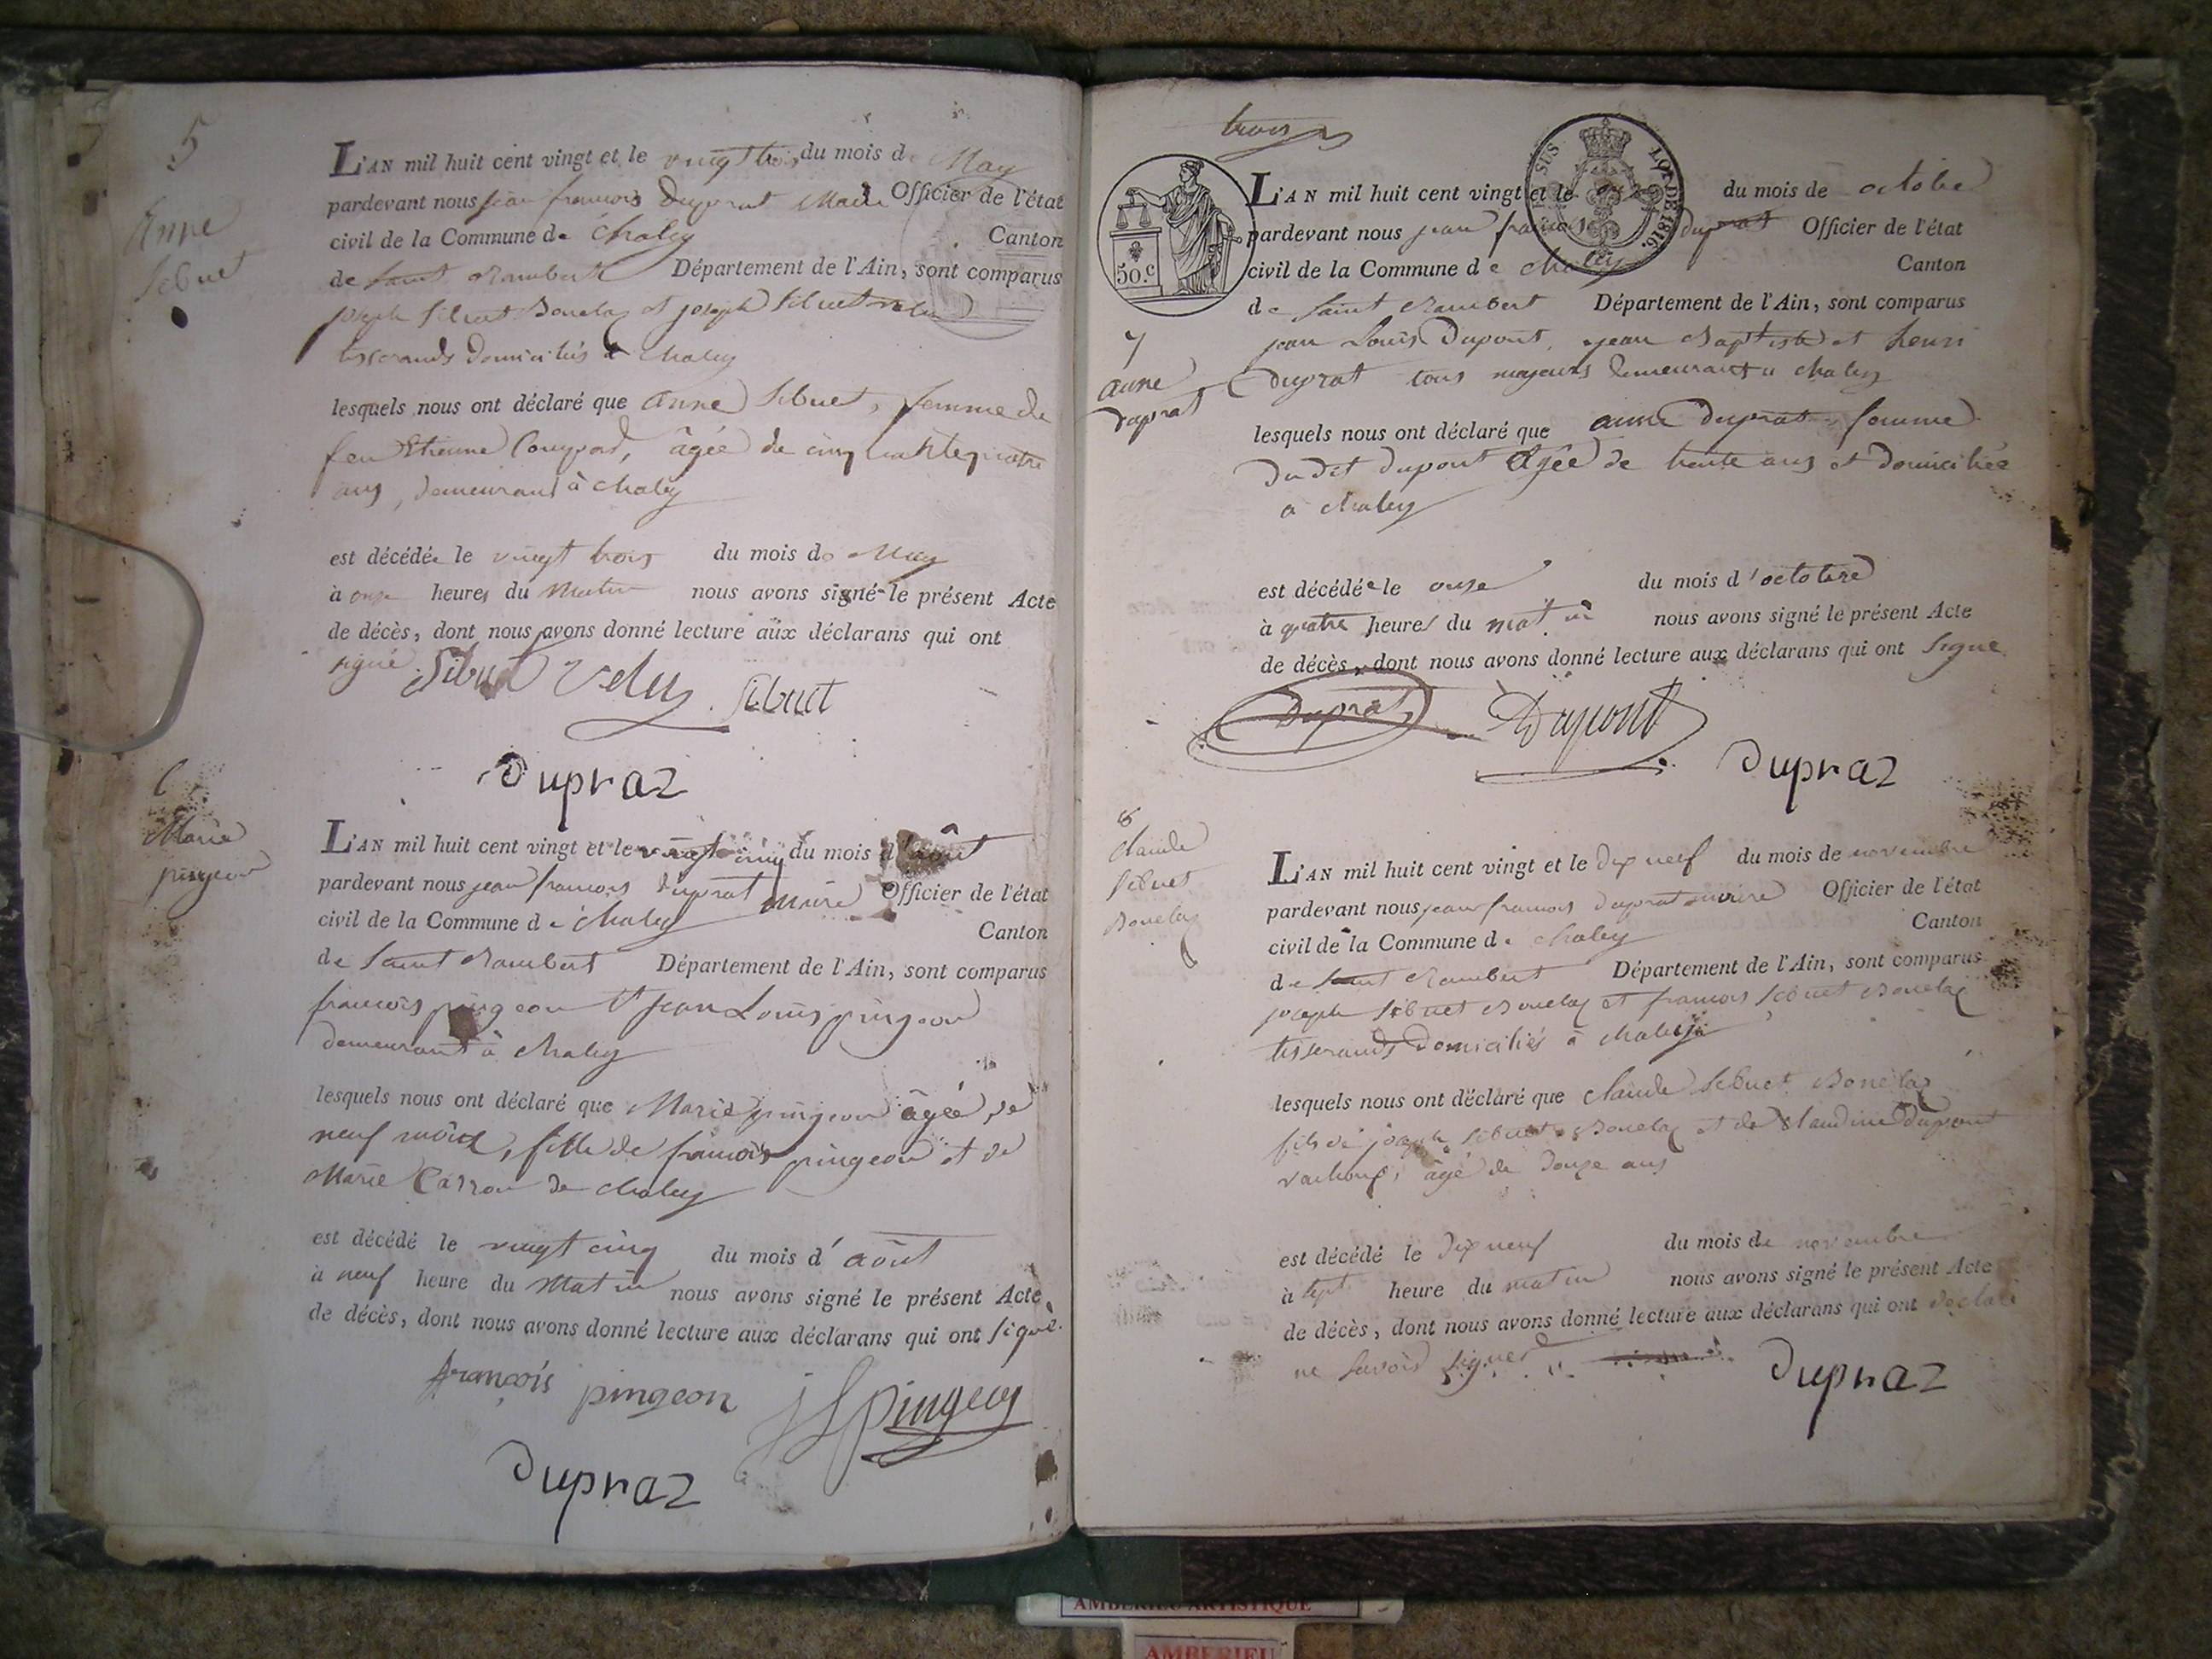 5
Anne
Sibuet
L'AN mil huit cent vingt et le vingt trois du mois de May
pardevant nous jean françois Duprat Maire Officier de l'état
civil de la Commune de Chaley Canton
de Saint Rambert Département de l'Ain, sont comparus
joseph Sibuet Bouelaz et joseph Sibuet velu
tisserands domiciliés a Chaley
lesquels nous ont déclaré que anne Sibuet, femme de
feu Etienne âgée de cinquante quatre
ans, demeurant à chaley
est décédée le vingt trois du mois de May
à onze heures du Matin nous avons signé le présent Acte
de décès, dont nous avons donné lecture aux déclarans qui ont
signé Sibuet Velu Sibuet
Dupraz
6
Marie
pingeon
L'AN mil huit cent vingt et le vingt cinq du mois d'août
pardevant nous jean francois duprat maire Officier de l'état
civil de la Commune de Chaley Canton
de Saint Rambert Département de l'Ain, sont comparus
francois pingeon et jean Louis pingeon
demeurant à chaley
lesquels nous ont déclaré que Marie pingeon âgée de
neuf mois, fille de francois pingeon et de
Marie Carron de chaley
est décédé le vingt cinq du mois d'août
à neuf heure du Matin nous avons signé le présent Acte
de décès, dont nous avons donné lecture aux déclarans qui ont signé.
françois pingeon jLpingeon
Dupraz
trois
SUS LOI DE 1816.
50.c
L'AN mil huit cent vingt et le onze du mois de octobre
pardevant nous jean francois duprat Officier de l'état
civil de la Commune de chaley Canton
de Saint Rambert Département de l'Ain, sont comparus
7
anne
duprat
jean Louis Dupont, jean Baptiste et henri
Duprat tous majeurs demeurant a chaley
lesquels nous ont déclaré que anne Duprat femme
du dit dupont âgée de trente ans et domiciliée
a chaley
est décédée le onze du mois d'octobre
à quatre heures du matin nous avons signé le présent Acte
de décès, dont nous avons donné lecture aux déclarans qui ont signé
Duprat Dupont
Dupraz
8
claude
Sibuet
Bouelaz
L'AN mil huit cent vingt et le dix neuf du mois de novembre
pardevant nous jean francois duprat maire Officier de l'état
civil de la Commune de chaley Canton
de Saint Rambert Département de l'Ain, sont comparus
joseph Sibuet Bouelaz et francois Sibuet Bouelaz
tisserands domiciliés à chaley
lesquels nous ont déclaré que claude Sibuet Bouelaz
fils de joseph Sibuet Bouelaz et de claudine dupont
âgé de douze ans
est décédé le dix neuf du mois de novembre
à sept heure du matin nous avons signé le présent Acte
de décès, dont nous avons donné lecture aux déclarans qui ont declaré
ne savoir signer
Dupraz
AMBERIEU ARTISTIQUE
AMBERIEU